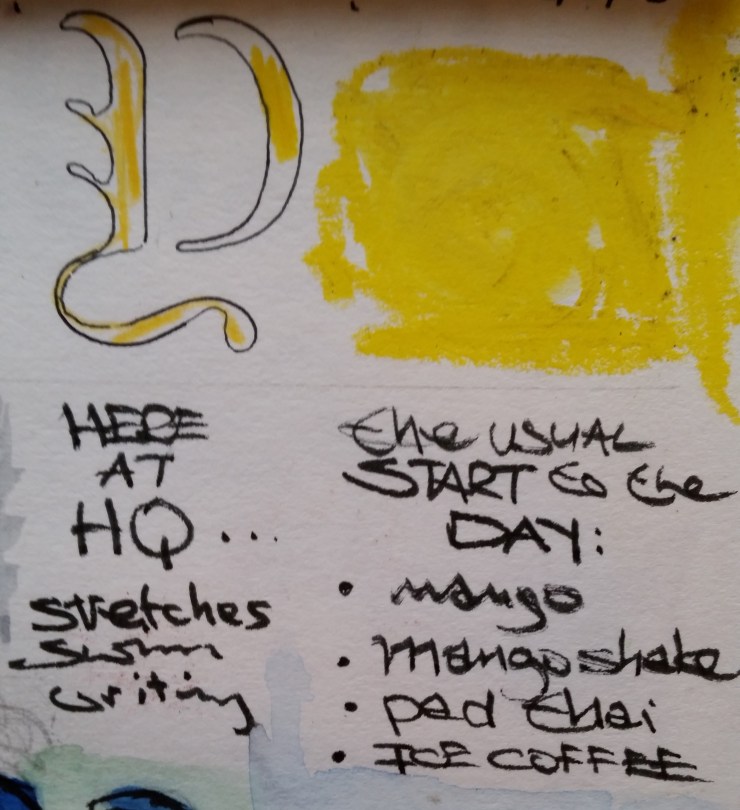 HERE
AT
HQ...
stretches
swim
writing
the USUAL
START to the
DAY:
• mango
• mango shake
• pad thai
• ICE COFFEE